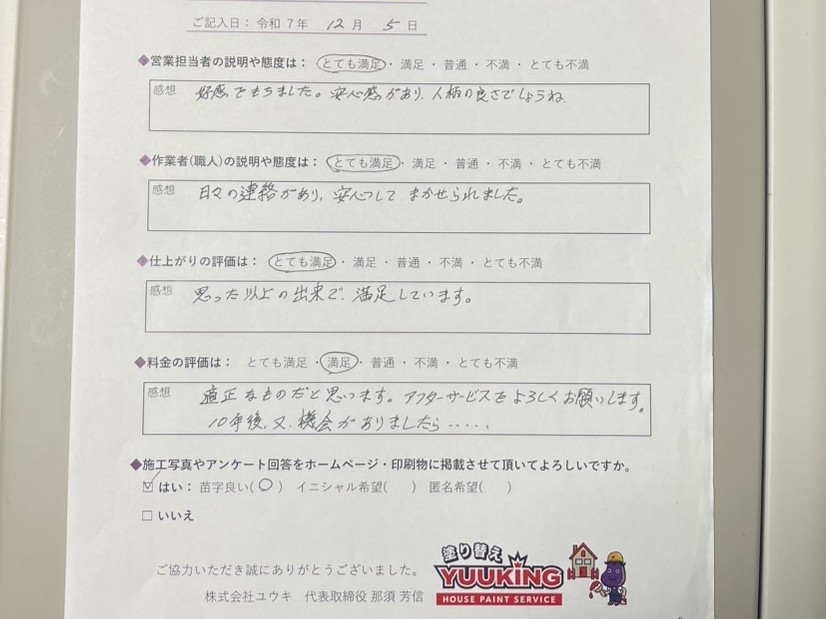 ご記入日：令和7年 12月 5日
◆営業担当者の説明や態度は：とても満足・満足・普通・不満・とても不満
感想 好感をもちました。安心感があり、人柄の良さでしょうね。
◆作業者(職人)の説明や態度は：とても満足・満足・普通・不満・とても不満
感想 日々の連絡があり、安心してまかせられました。
◆仕上がりの評価は：とても満足・満足・普通・不満・とても不満
感想 思った以上の出来で、満足しています。
◆料金の評価は：とても満足・満足・普通・不満・とても不満
感想 適正なものだと思います。アフターサービスをよろしくお願いします。
10年後、又、機会がありましたら‥‥‥
◆施工写真やアンケート回答をホームページ・印刷物に掲載させて頂いてよろしいですか。
☑はい：苗字良い(○) イニシャル希望( ) 匿名希望( )
□いいえ
ご協力いただき誠にありがとうございました。
株式会社ユウキ 代表取締役 那須 芳信
塗り替え
YUUKING
HOUSE PAINT SERVICE